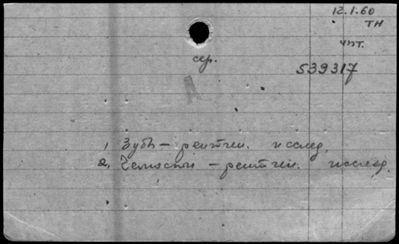 12.1.60
ТН
чит.
сер.
539317
1, Зубы – рентген. исслед.
2, Челюсти – рентген. исслед.